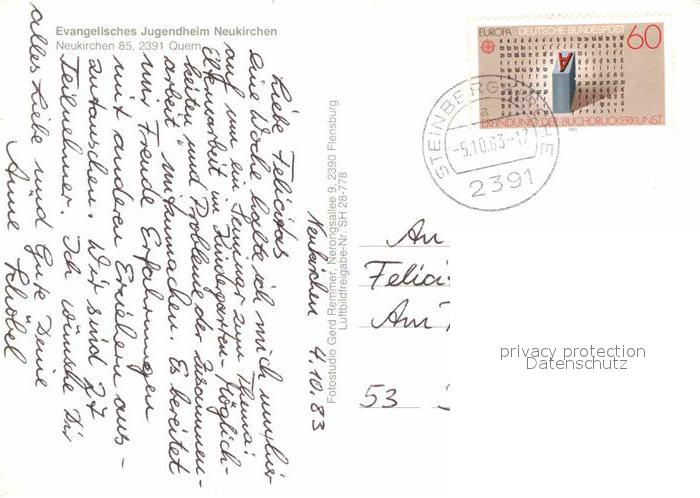 Evangelisches Jugendheim Neukirchen
Neukirchen 85, 2391 Quern
Neukirchen 4.10.83
Liebe Felicitas
eine Woche halte ich mich nun hier
auf um ein Seminar zum Thema:
Elternarbeit im Kindergarten - Möglich-
keiten und Probleme der Zusammen-
arbeit" mitzumachen. Es bereitet
mir Freude Erfahrungen
mit anderen Erziehern aus-
zutauschen. Wir sind 27
Teilnehmer. Ich wünsche Dir
alles Liebe und Gute Deine
Anne
Fotostudio Gerd Remmer, Nerongsallee 9, 2390 Flensburg
Luftbildfreigabe-Nr. SH 28-778
EUROPA DEUTSCHE BUNDESPOST 60
ERFINDUNG DER BUCHDRUCKERKUNST
1983
STEINBERGKIRCHE
a
-5.10.83-17
2391
An
Felici
Am
53
privacy protection
Datenschutz